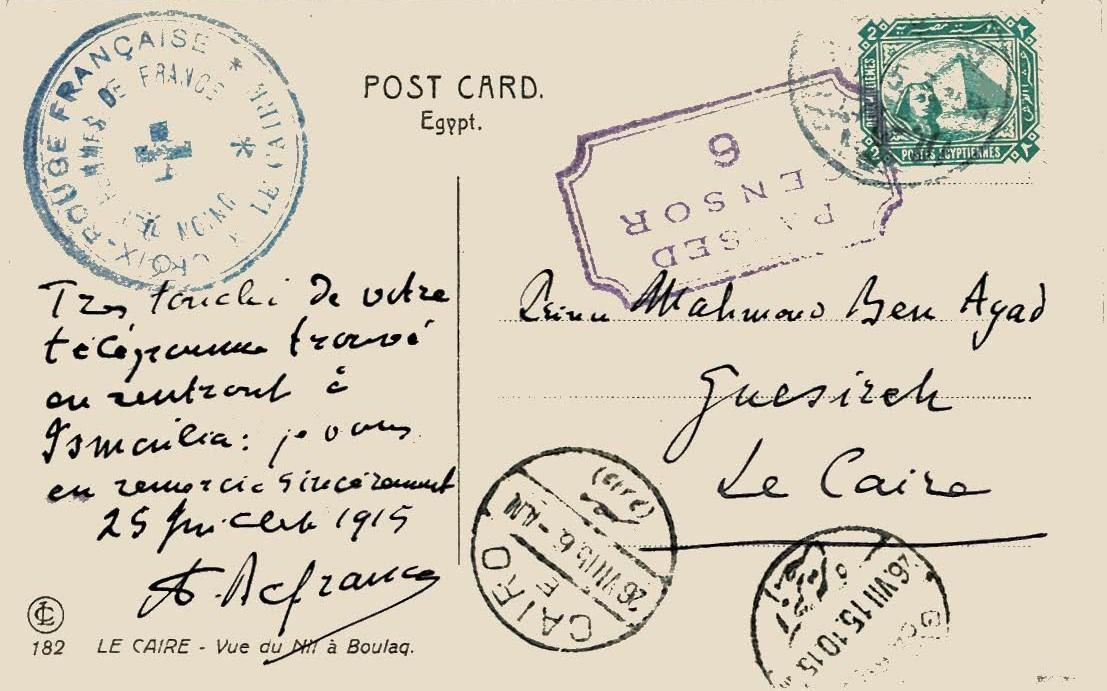 CROIX-ROUGE FRANÇAISE * COMITÉ DU CAIRE *
UNION DES FEMMES DE FRANCE
POST CARD.
Egypt.
PASSED
CENSOR
6
2 2
POSTES EGYPTIENNES
2
Très touché de votre
télégramme trouvé
en rentrant à
Ismaïlia: je vous
en remercie sincèrement
25 Juillet 1915
Mahmoud Ben Ayad
Guesireh
Le Caire
CAIRO
E
26 VII 15 6 - AM
26 VII 15.10.15
LC
182 LE CAIRE - Vue du Nil à Boulaq.